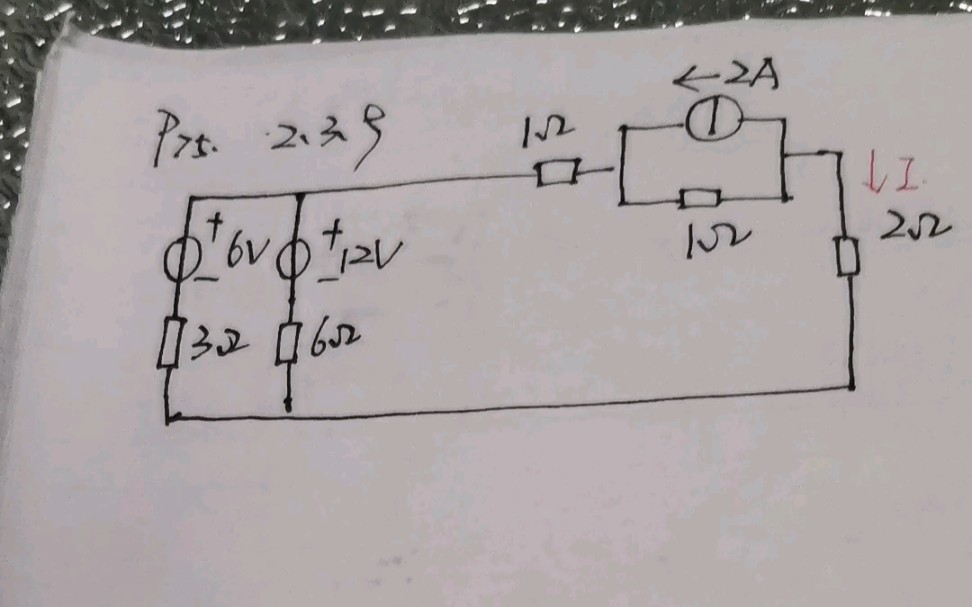 P75. 2.3.9
←2A
1Ω
↓I.
1Ω
2Ω
+ 6V -
+ 12V -
3Ω
6Ω